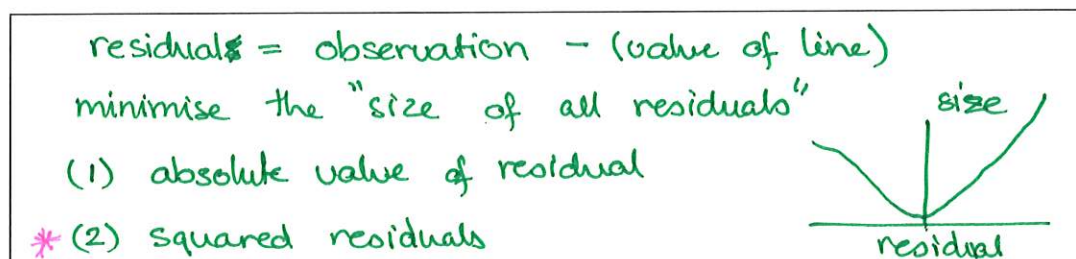 residual = observation - (value of line)
minimise the "size of all residuals"
size
(1) absolute value of residual
* (2) squared residuals
residual